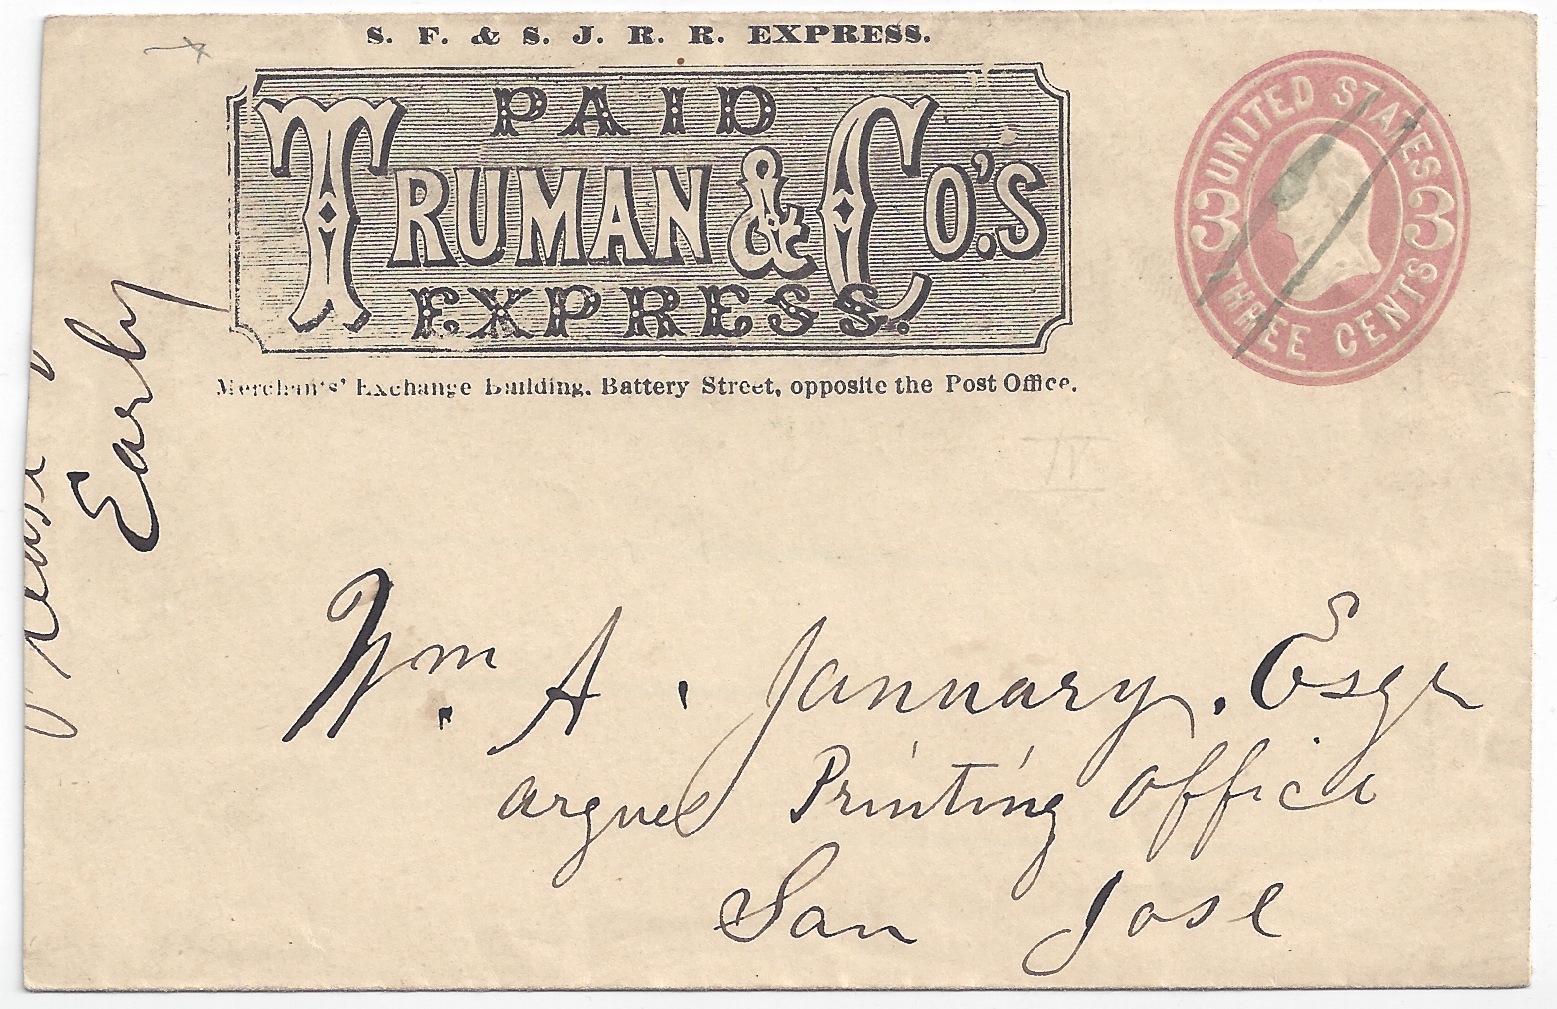 S. F. & S. J. R. R. EXPRESS.
PAID
TRUMAN & CO.'S
EXPRESS.
Merchants' Exchange Building, Battery Street, opposite the Post Office.
UNITED STATES
3 3
THREE CENTS
Please
Early
Wm. A. January. Esqr
argus Printing Office
San Jose